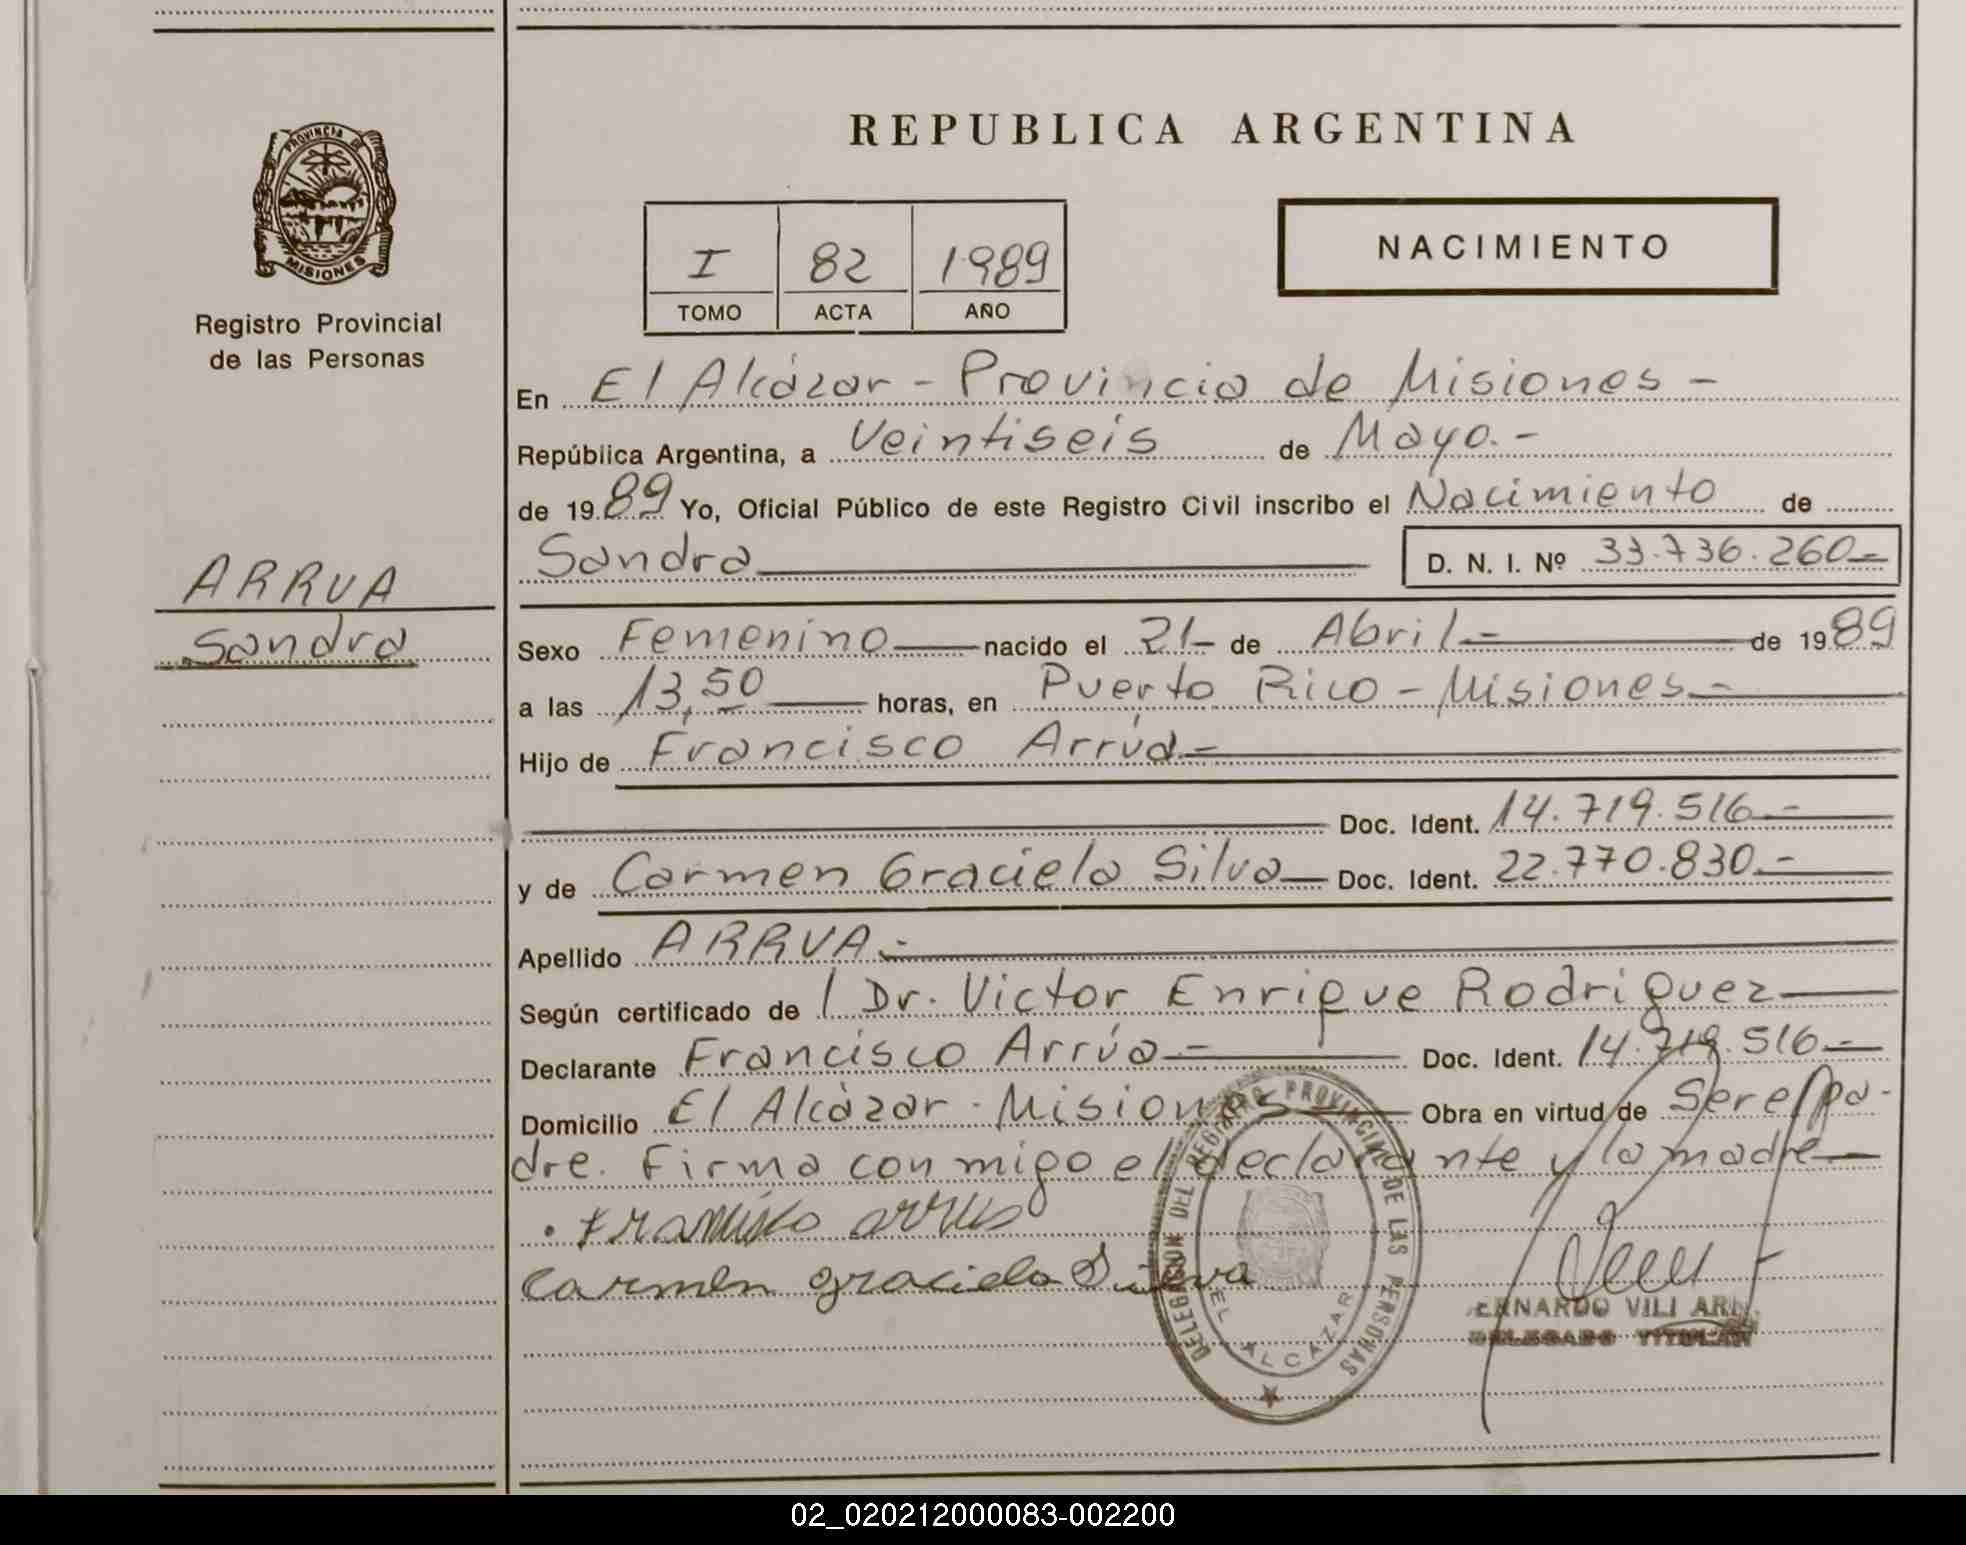 PROVINCIA DE
MISIONES
Registro Provincial
de las Personas
ARRUA
Sandra
REPUBLICA ARGENTINA
I 82 1989
TOMO ACTA AÑO
NACIMIENTO
En El Alcázar - Provincia de Misiones -
República Argentina, a Veintiseis de Mayo.-
de 1989 Yo, Oficial Público de este Registro Civil inscribo el Nacimiento de
Sandra D. N. I. Nº 33.736.260-
Sexo Femenino nacido el 21- de Abril.- de 1989
a las 13,50 horas, en Puerto Rico - Misiones.-
Hijo de Francisco Arrúa.-
Doc. Ident. 14.719.516.-
y de Carmen Graciela Silva Doc. Ident. 22.770.830.-
Apellido ARRUA.-
Según certificado de / Dr. Victor Enrique Rodriguez
Declarante Francisco Arrúa.- Doc. Ident. 14.719.516.-
Domicilio El Alcázar - Misiones Obra en virtud de Ser el pa-
dre. Firma conmigo el declarante y la madre
Francisco arrua
Carmen graciela Silva
DELEGACION DEL REGISTRO PROVINCIAL DE LAS PERSONAS
EL ALCAZAR
VILI
DELEGADO TITULAR
02_020212000083-002200